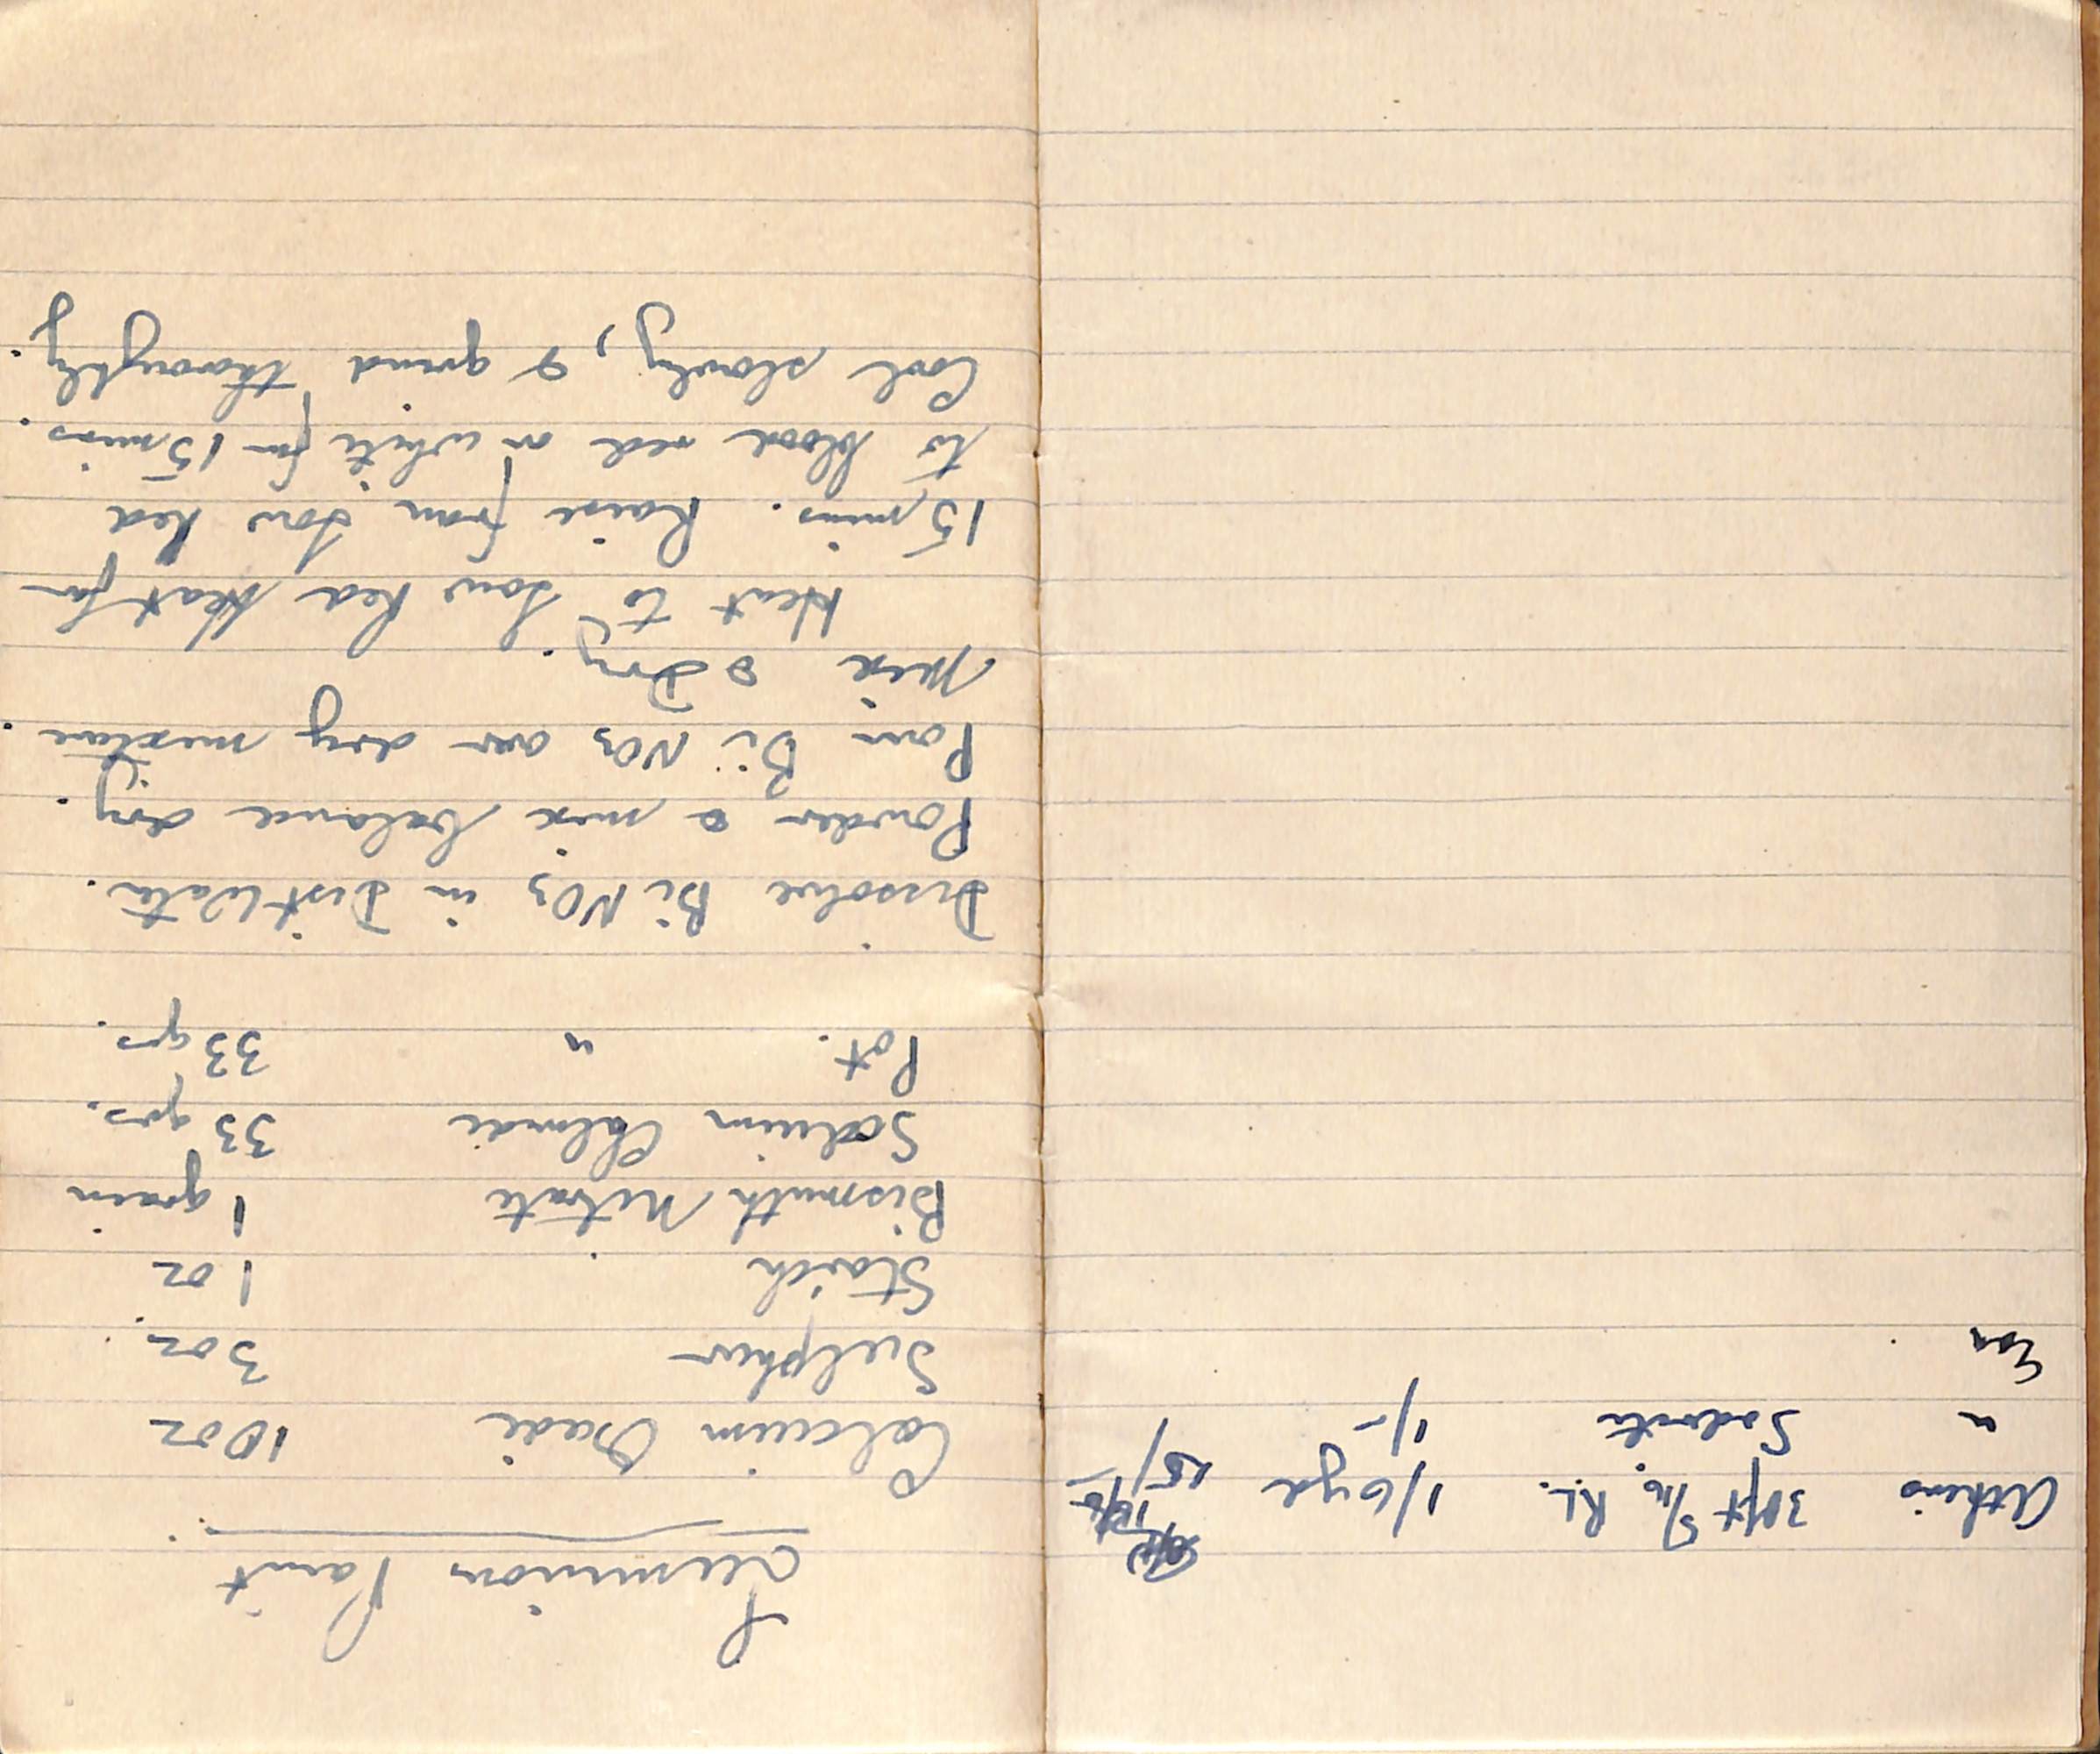 Atkins 30ft 5/16 R.L. 1/6 yd 15/
" Sodorite 1/-
Luminous Paint
Calcium Oxide 10 oz
Sulphur 3 oz
Starch 1 oz
Bismuth Nitrate 1 grain
Sodium Chloride 33 grs.
Pot. " 33 grs.
Dissolve Bi NO3 in Dist Water.
Powder & mix balance dry.
Pour Bi NO3 over dry mixture.
Mix & Dry.
Heat to Low Red Heat for
15 mins. Raise from Low Red
to blood red or white for 15 mins.
Cool slowly, & grind thoroughly.